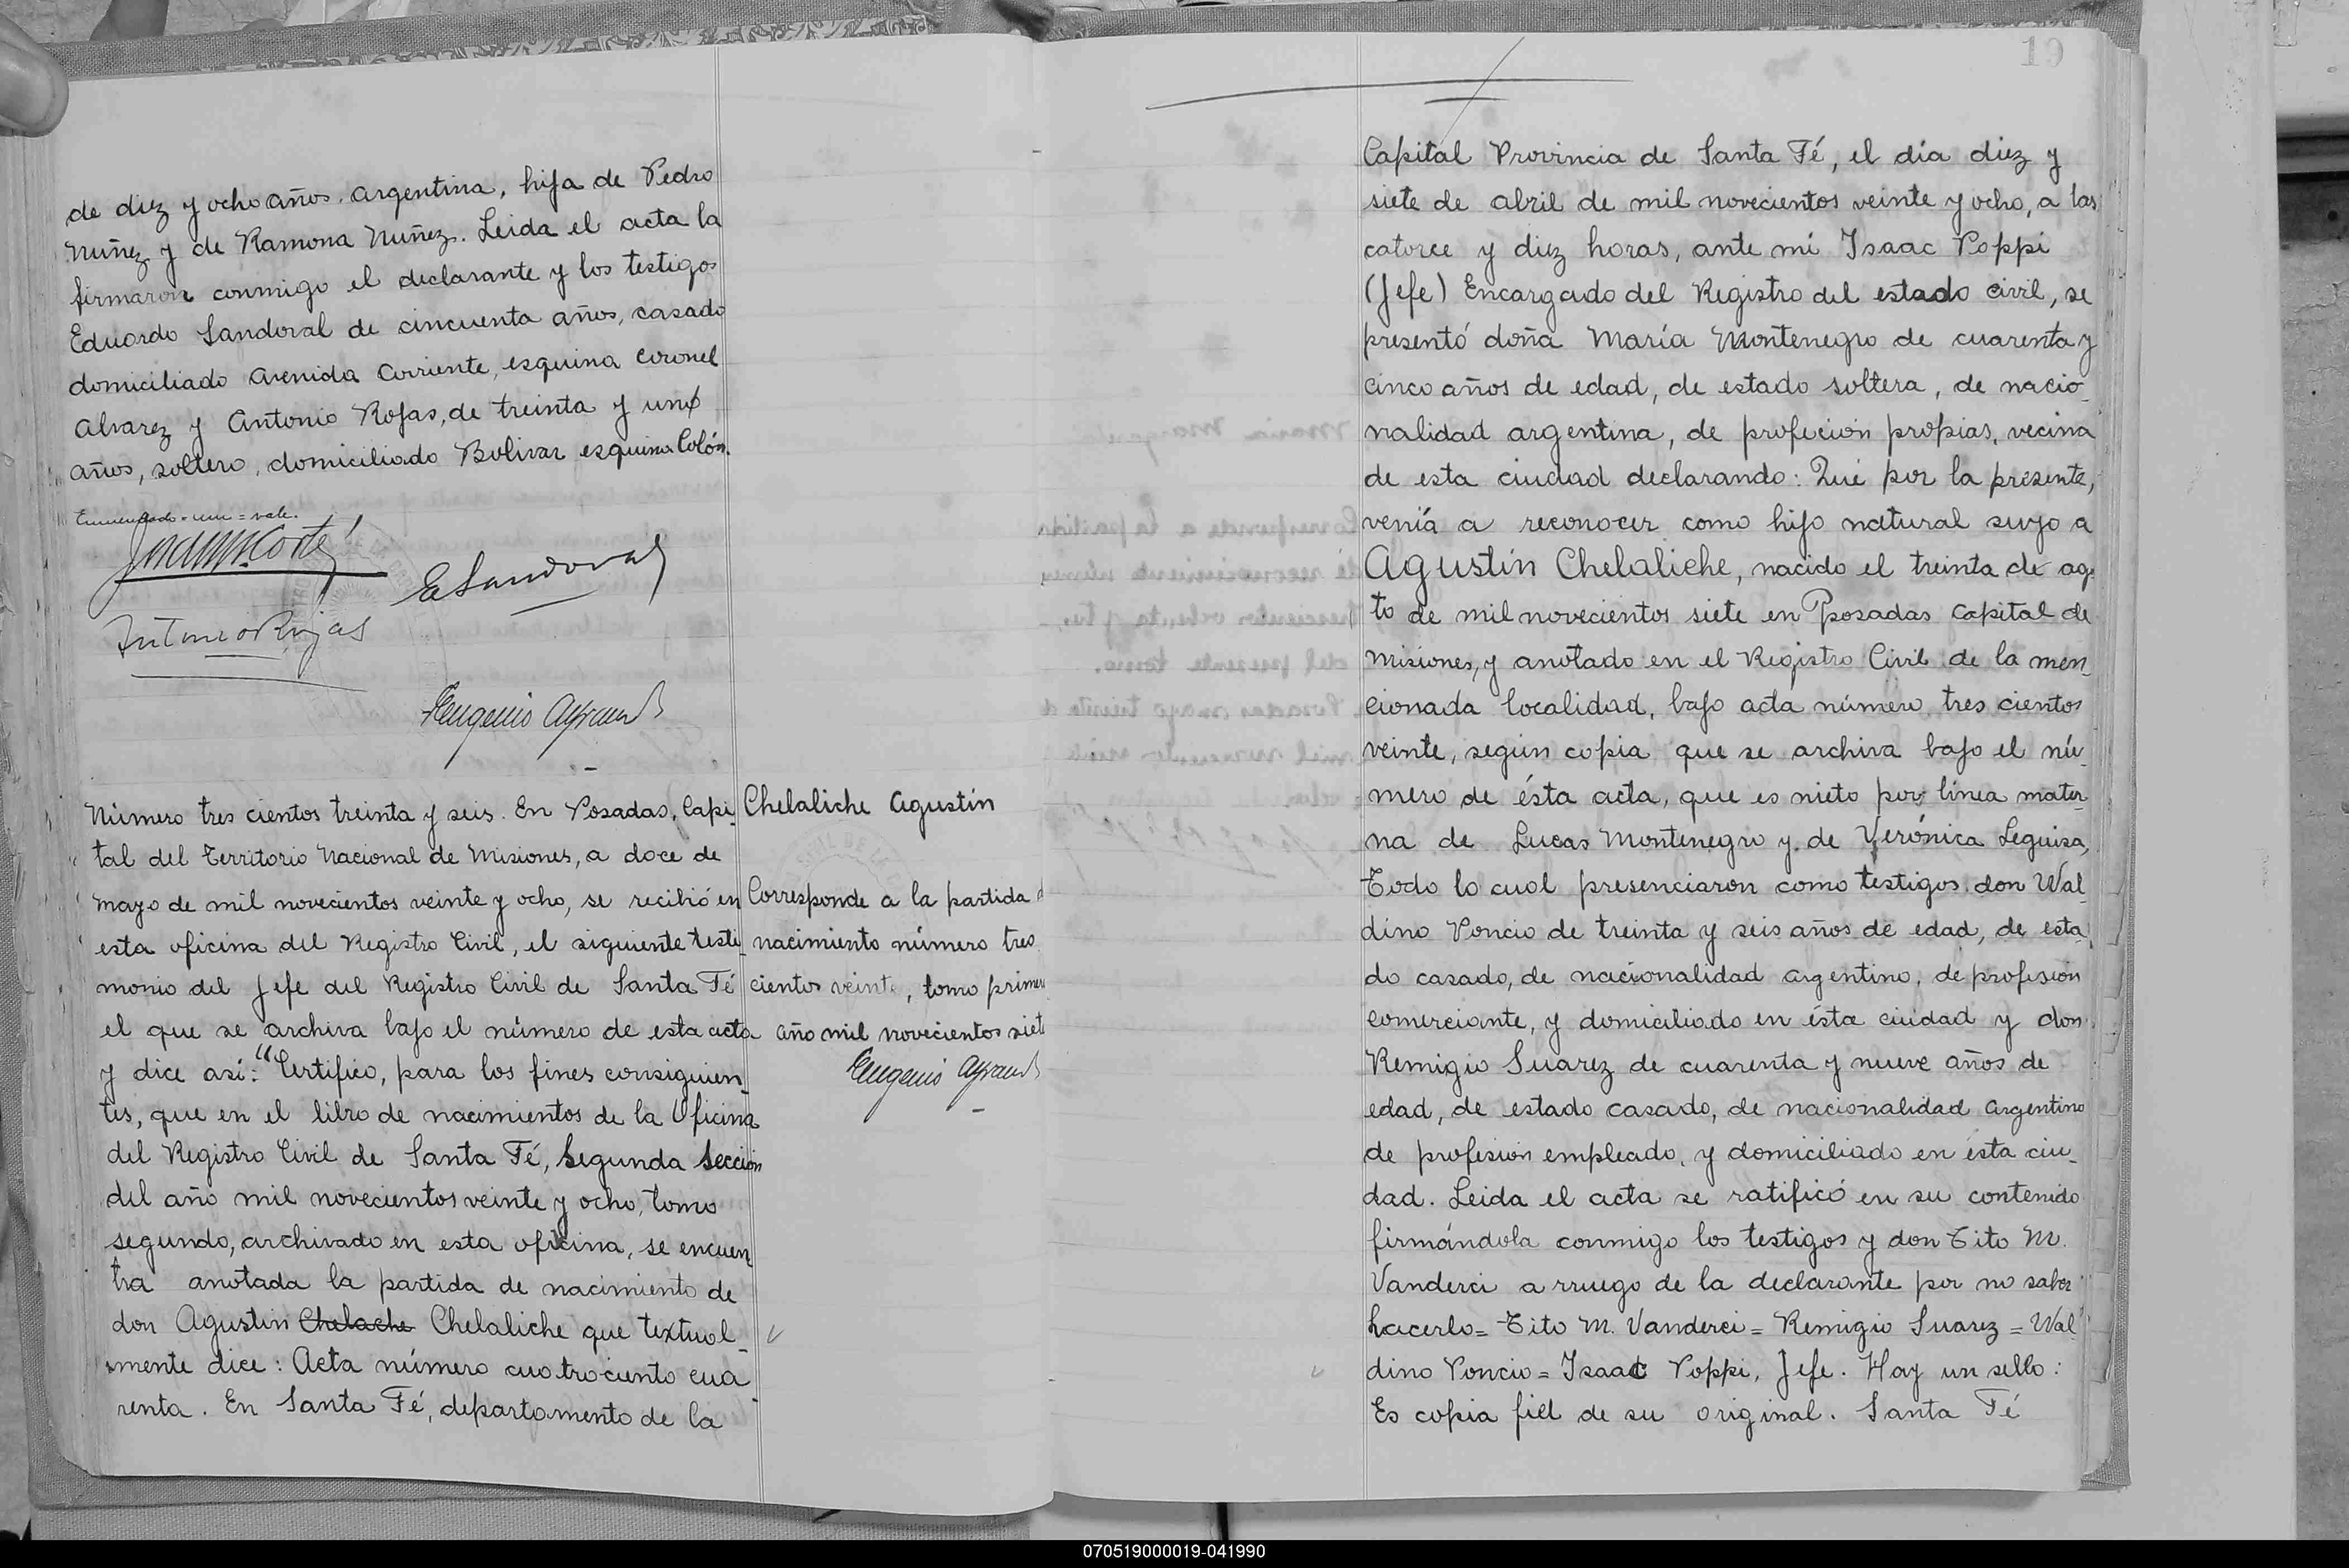 de diez y ocho años, argentina, hija de Pedro
Nuñez y de Ramona Nuñez. Leida el acta la
firmaron conmigo el declarante y los testigos
Eduardo Sandoval de cincuenta años, casado
domiciliado Avenida Corriente, esquina Coronel
Alvarez y Antonio Rojas, de treinta y uno
años, soltero, domiciliado Bolivar esquina Colón.
Enmendado = un = vale.
E Sandoval
Antonio Rojas
Eugenio
Número tres cientos treinta y seis. En Posadas, Capi-
tal del Territorio Nacional de Misiones, a doce de
mayo de mil novecientos veinte y ocho, se recibió en
esta oficina del Registro Civil, el siguiente testi-
monio del Jefe del Registro Civil de Santa Fé
el que se archiva bajo el número de esta acta
y dice asi: "Certifico, para los fines consiguien-
tes, que en el libro de nacimientos de la Oficina
del Registro Civil de Santa Fé, Segunda Sección
del año mil novecientos veinte y ocho, tomo
segundo, archivado en esta oficina, se encuen-
tra anotada la partida de nacimiento de
don Agustin Chelache Chelaliche que textual-
mente dice: Acta número cuatrociento cua-
renta. En Santa Fé, departamento de la
Chelaliche Agustín
Corresponde a la partida
nacimiento número tres
cientos veinte, tomo primero
año mil novecientos siete
Eugenio
19
Capital Provincia de Santa Fé, el día diez y
siete de abril de mil novecientos veinte y ocho, a las
catorce y diez horas, ante mí Isaac Poppi
(Jefe) Encargado del Registro del estado civil, se
presentó doña María Montenegro de cuarenta y
cinco años de edad, de estado soltera, de nacio-
nalidad argentina, de profeción propias, vecina
de esta ciudad declarando: Que por la presente,
venía a reconocer como hijo natural suyo a
Agustín Chelaliche, nacido el treinta de ags
to de mil novecientos siete en Posadas Capital de
Misiones, y anotado en el Registro Civil de la men-
cionada localidad, bajo acta número tres cientos
veinte, según copia que se archiva bajo el nú-
mero de ésta acta, que es nieto por línea mater-
na de Lucas Montenegro y de Verónica Leguisa,
Todo lo cual presenciaron como testigos don Wal-
dino Poncio de treinta y seis años de edad, de esta-
do casado, de nacionalidad argentino, de profesión
comerciante, y domiciliado en ésta ciudad y don
Remigio Suarez de cuarenta y nueve años de
edad, de estado casado, de nacionalidad argentino
de profesión empleado, y domiciliado en ésta ciu-
dad. Leida el acta se ratificó en su contenido
firmándola conmigo los testigos y don Tito M.
Vanderci a rruego de la declarante por no saber
hacerlo = Tito M. Vanderci = Remigio Suarez = Wal-
dino Poncio = Isaac Poppi, Jefe. Hay un sello:
Es copia fiel de su original. Santa Fé
070519000019-041990